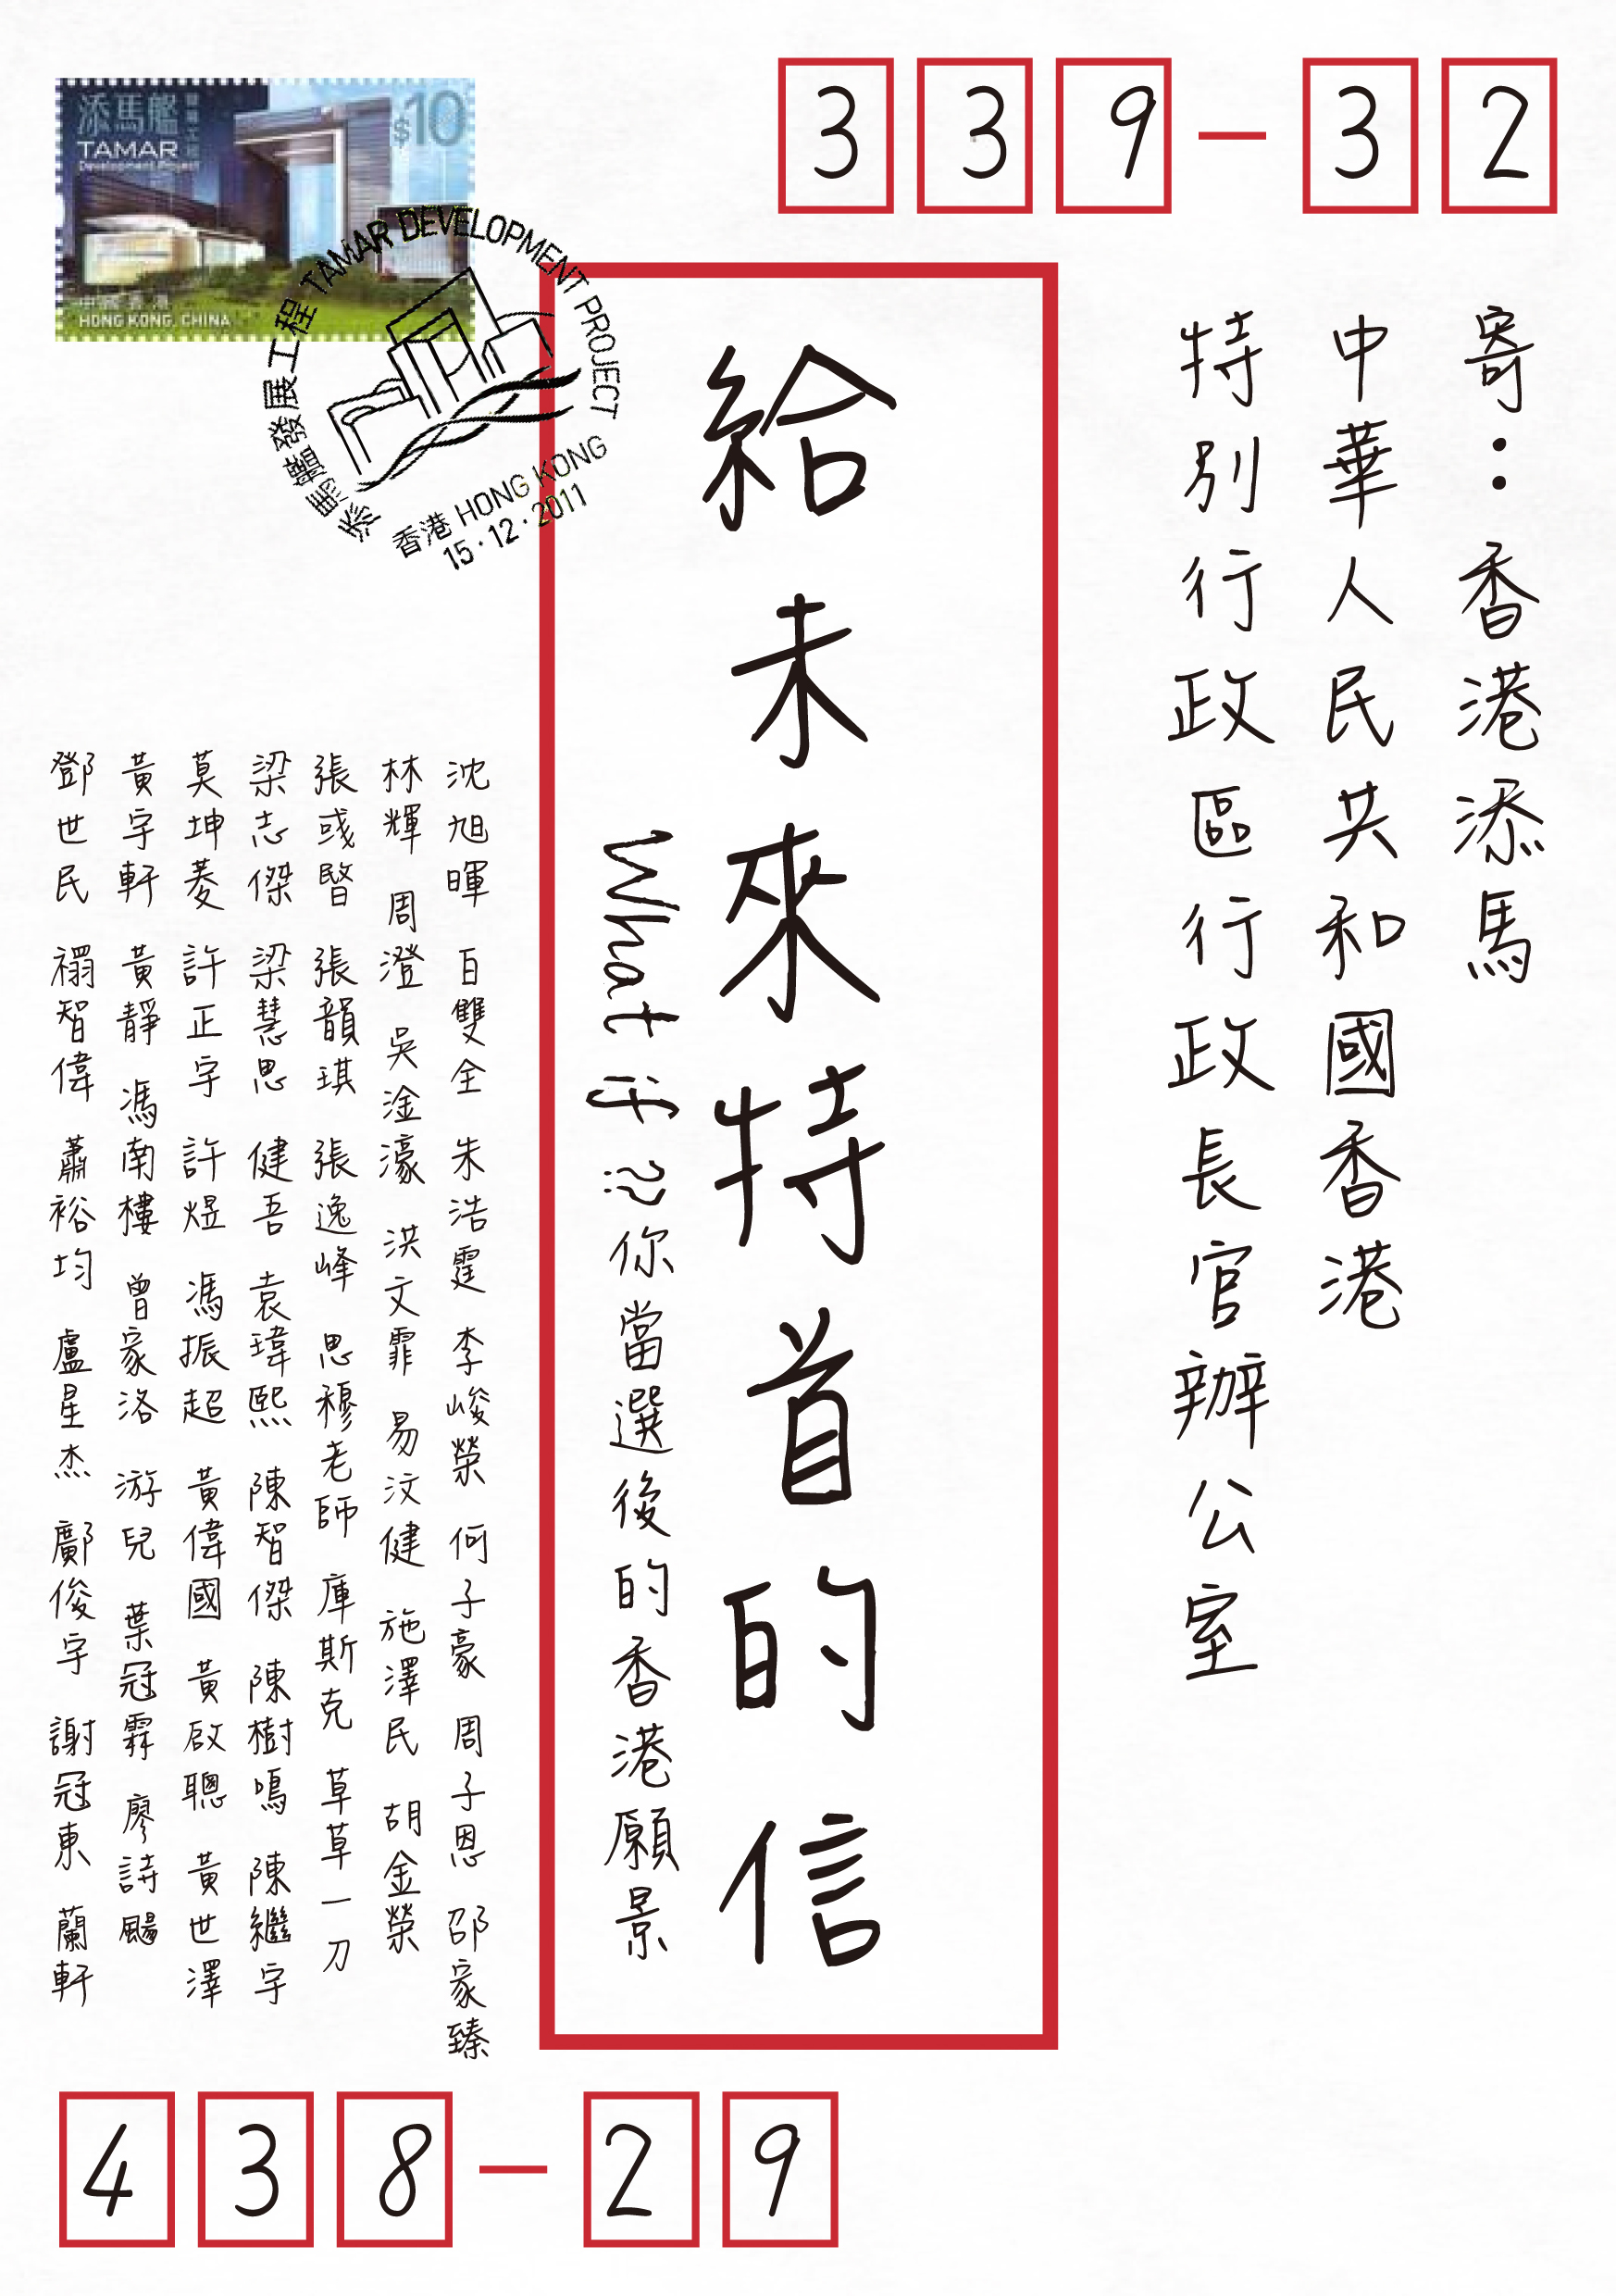 339-32
寄：香港添馬
中華人民共和國香港
特別行政區行政長官辦公室
給未來特首的信
What if ??你當選後的香港願景
添馬艦
發展工程
TAMAR
Development Project
$10
中國香港
HONG KONG, CHINA
添馬艦發展工程 TAMAR DEVELOPMENT PROJECT
香港 HONG KONG
15·12·2011
沈旭暉 白雙全 朱浩霆 李峻榮 何子豪 周子恩 邵家臻
林輝 周澄 吳淦濠 洪文霏 易汶健 施澤民 胡金榮
張彧暋 張韻琪 張逸峰 思穆老師 庫斯克 草草一刀
梁志傑 梁慧思 健吾 袁瑋熙 陳智傑 陳樹鳴 陳繼宇
莫坤菱 許正宇 許煜 馮振超 黃偉國 黃啟聰 黃世澤
黃宇軒 黃靜 馮南樓 曾家洛 游兒 葉冠霖 廖詩颺
鄧世民 禤智偉 蕭裕均 盧星杰 鄺俊宇 謝冠東 蘭軒
438-29